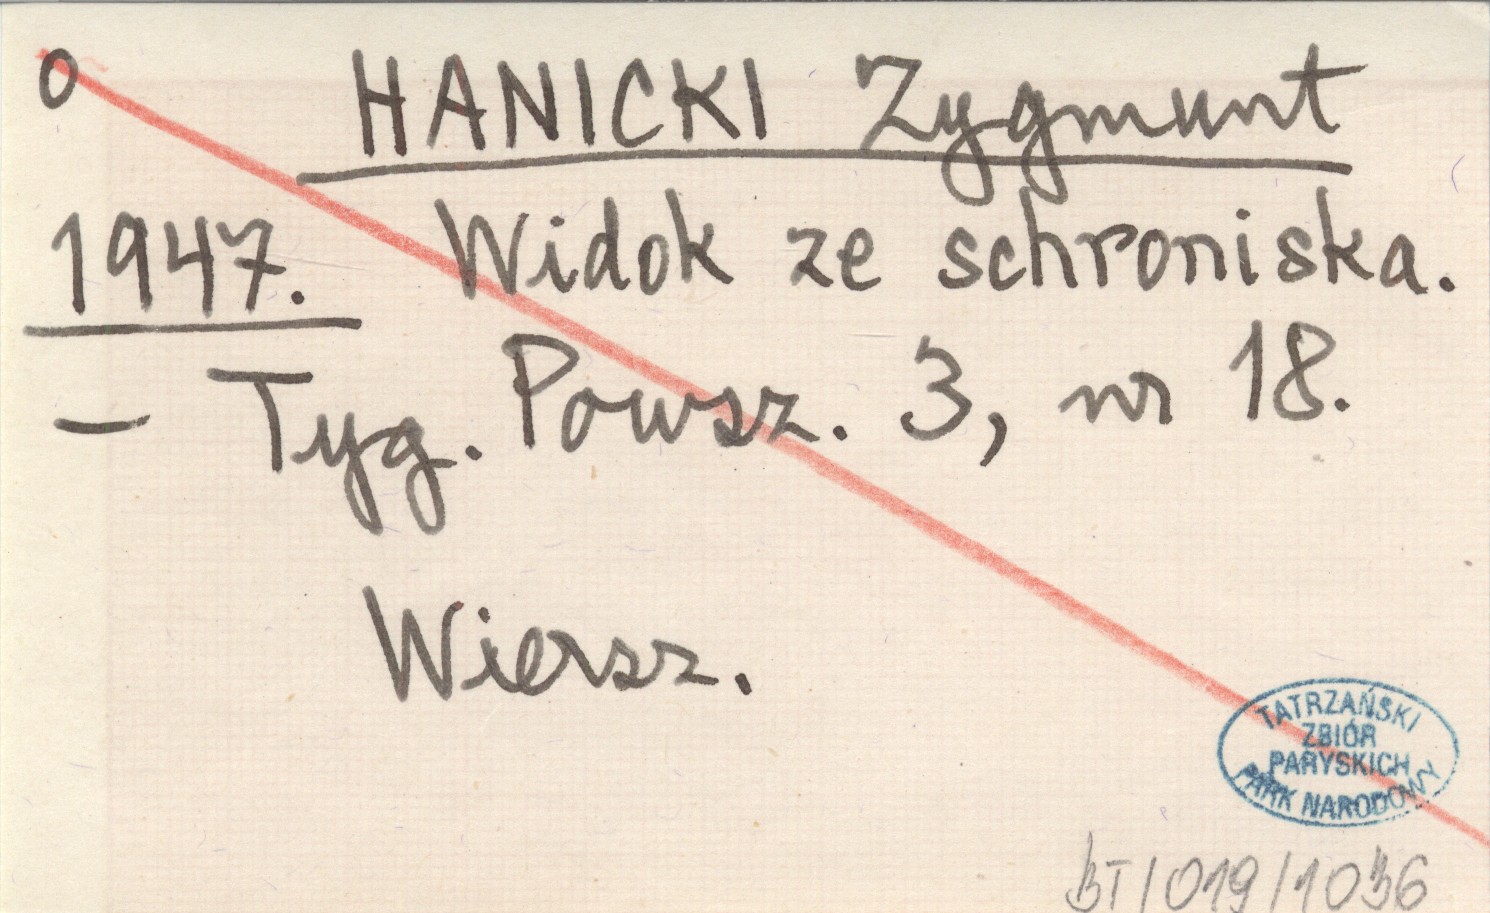 0 HANICKI Zygmunt
1947. Widok ze schroniska.
- Tyg. Powsz. 3, nr 18.
Wiersz.
TATRZAŃSKI
ZBIÓR
PARYSKICH
PARK NARODOWY
BT/019/1036